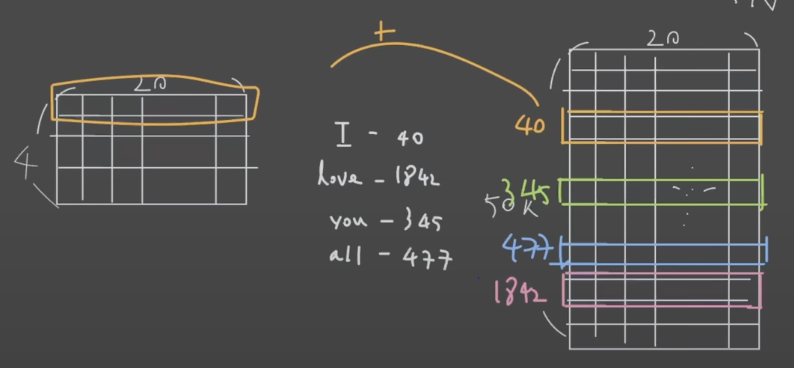 20
4
+
I - 40
love - 1842
you - 345
all - 477
20
40
345
50K
477
1842